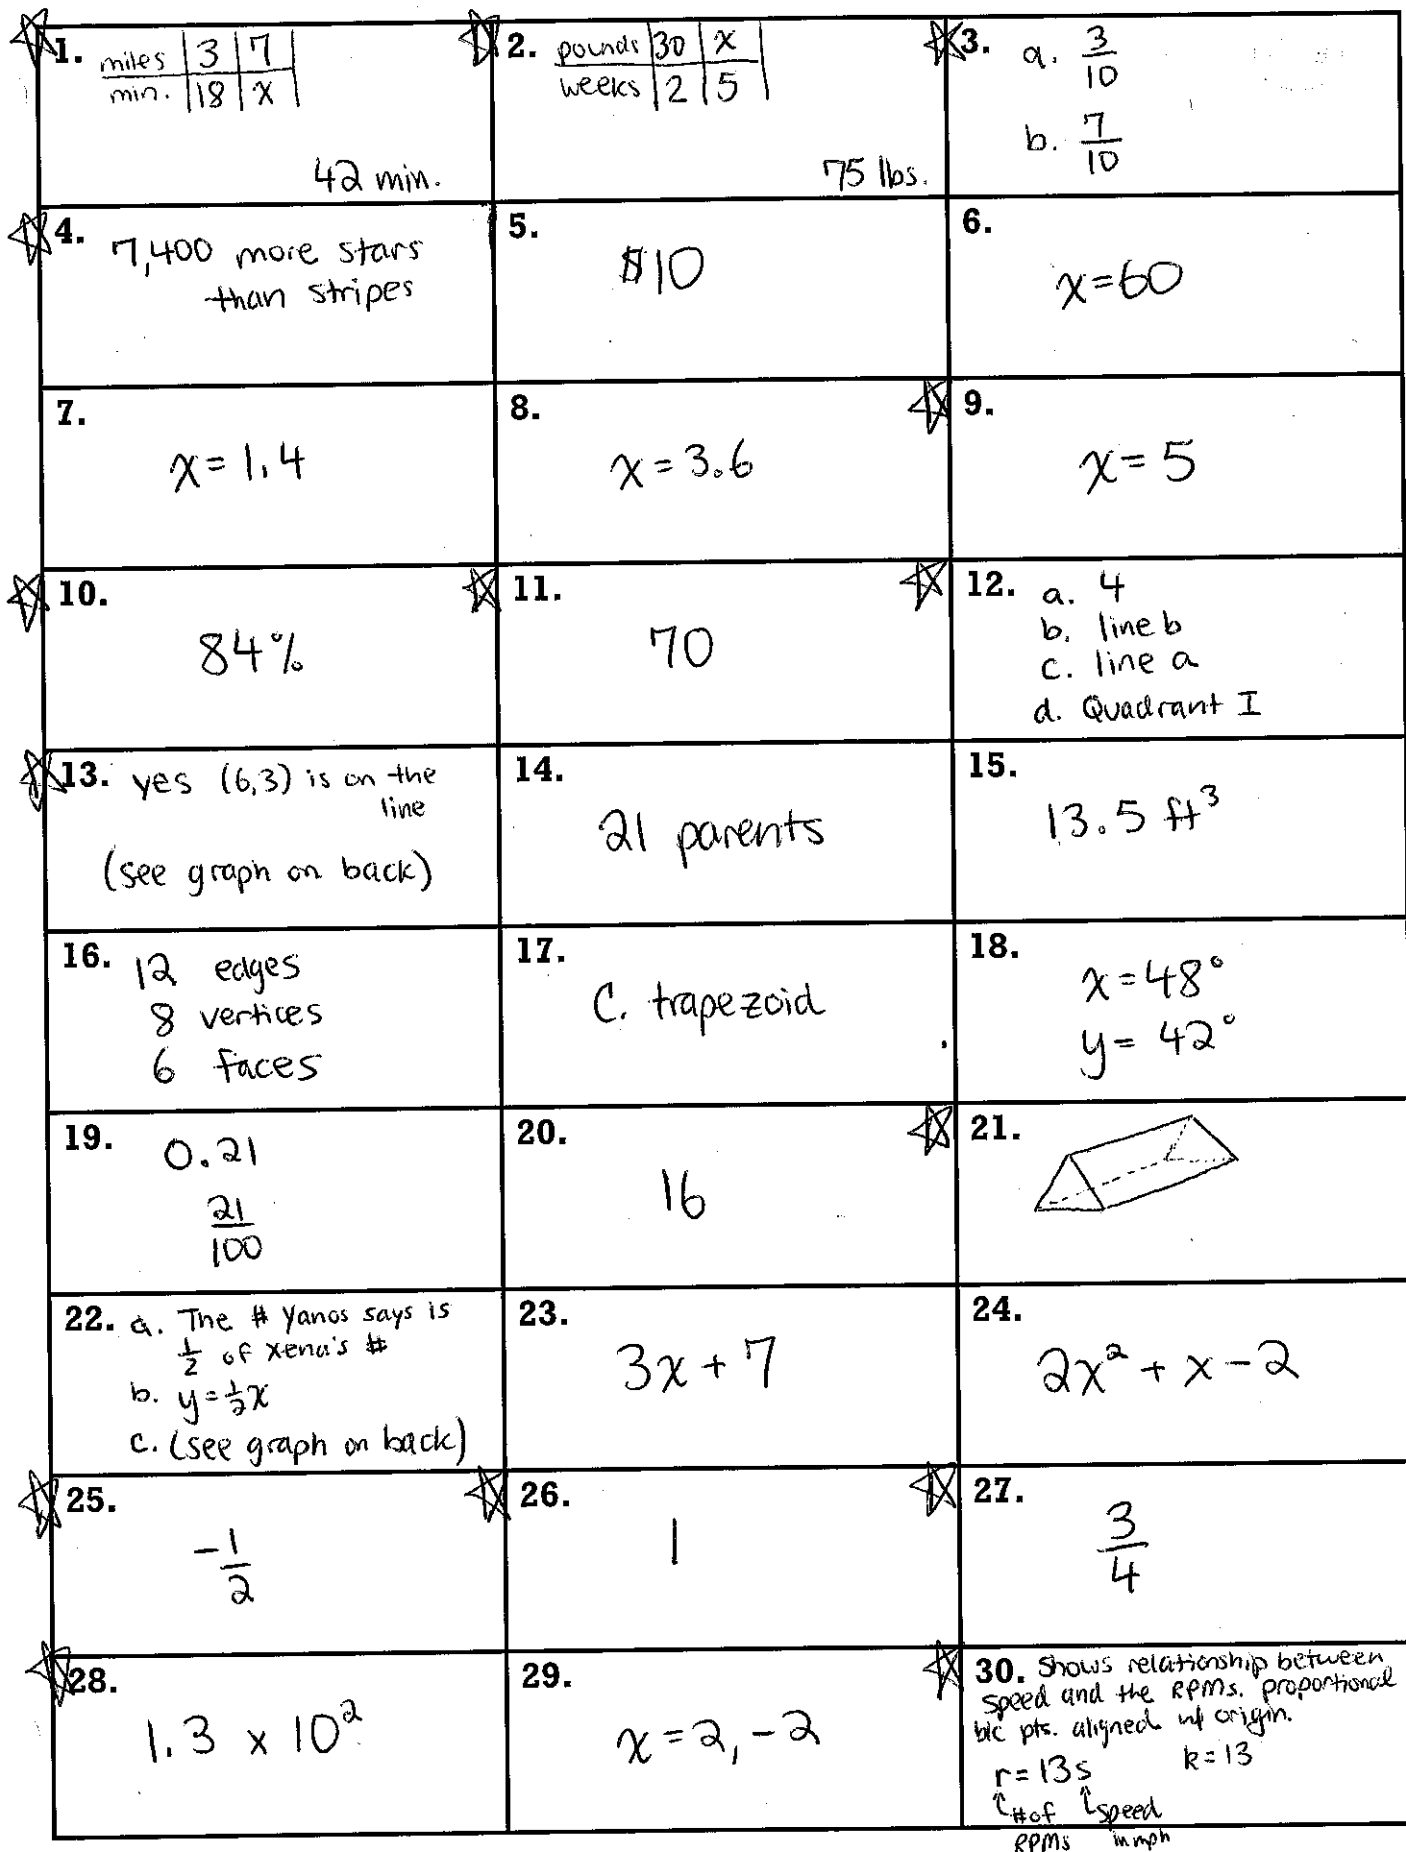 1. miles | 3 | 7
min. | 18 | x
42 min.
2. pounds | 30 | x
weeks | 2 | 5
75 lbs.
3. a. 3/10
b. 7/10
4. 7,400 more stars
than stripes
5. $10
6. x=60
7. x=1.4
8. x=3.6
9. x=5
10. 84%
11. 70
12. a. 4
b. line b
c. line a
d. Quadrant I
13. yes (6,3) is on the
line
(see graph on back)
14. 21 parents
15. 13.5 ft³
16. 12 edges
8 vertices
6 faces
17. C. trapezoid
18. x=48°
y=42°
19. 0.21
21/100
20. 16
21.
22. a. The # Yanos says is
1/2 of xena's #
b. y=1/2x
c. (see graph on back)
23. 3x+7
24. 2x²+x-2
25. -1/2
26. 1
27. 3/4
28. 1.3 x 10²
29. x=2,-2
30. Shows relationship between
speed and the RPMs. proportional
b/c pts. aligned w/ origin.
r=13s k=13
# of speed
RPMs in mph